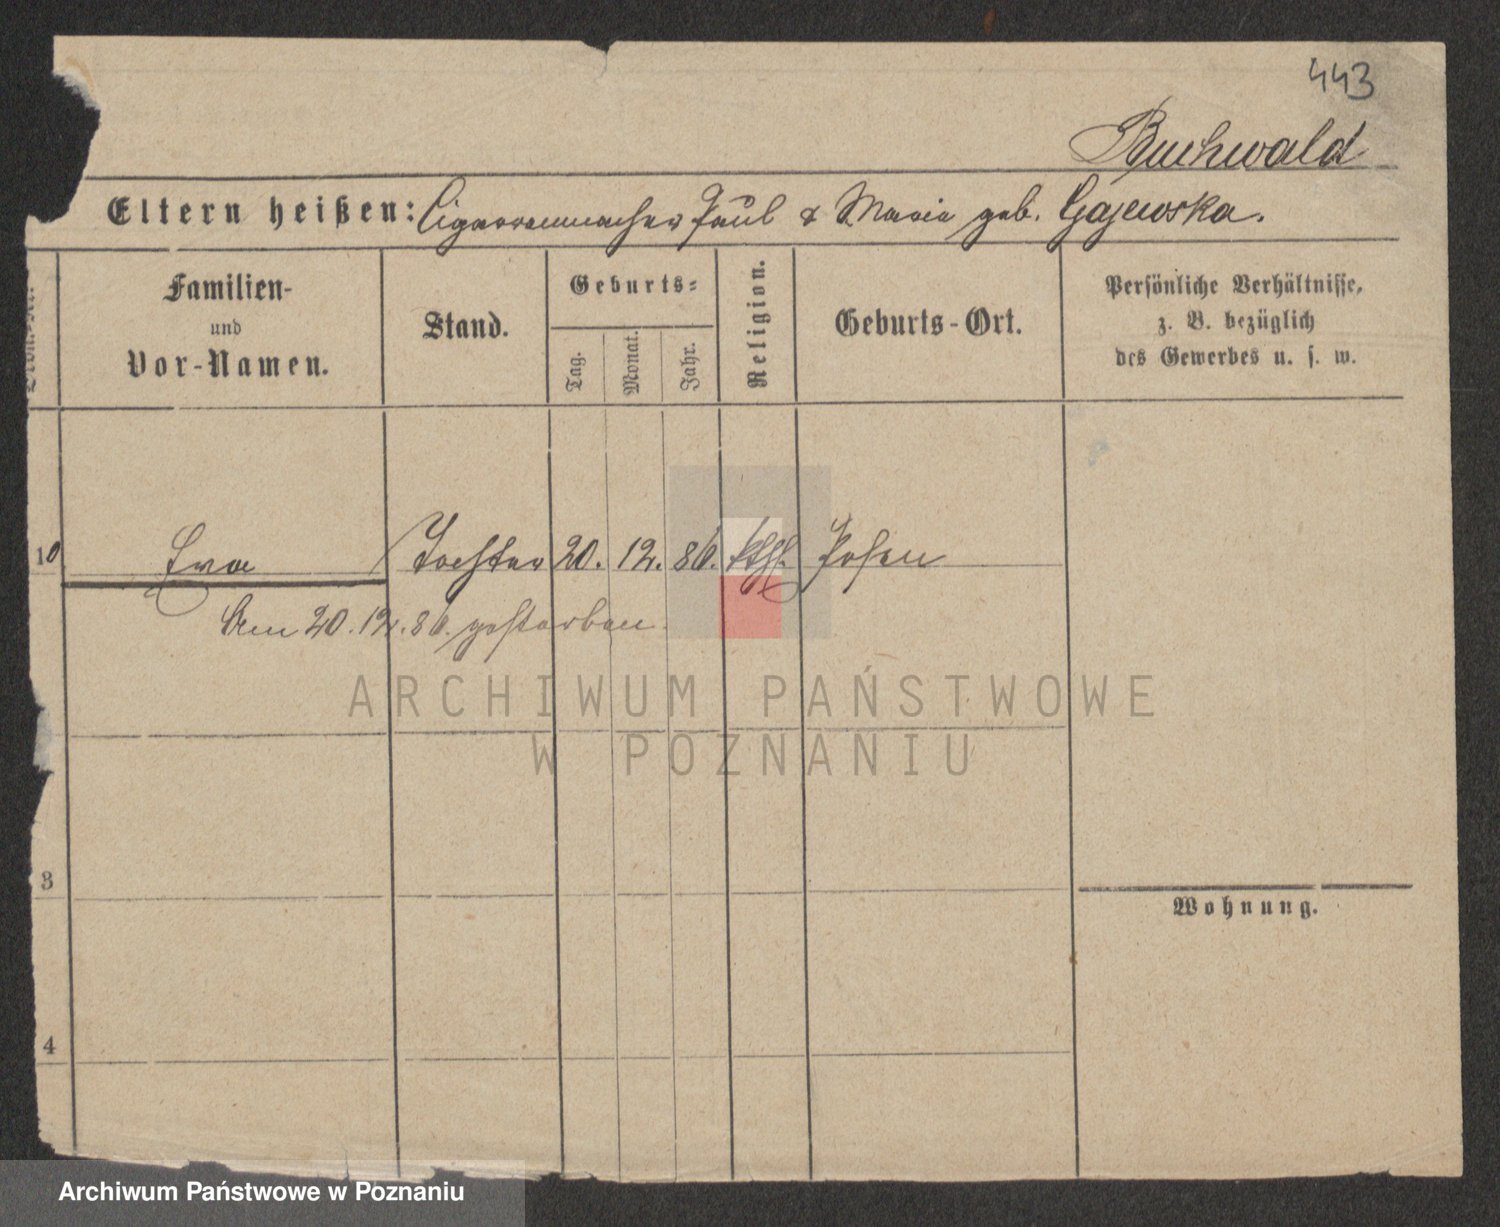 443
Buchwald
Eltern heißen: Cigarrenmacher Paul & Maria geb. Gajewska.
Familien-
und
Vor-Namen.
Stand.
Geburts-
Tag.
Monat.
Jahr.
Religion.
Geburts-Ort.
Persönliche Verhältnisse,
z. B. bezüglich
des Gewerbes u. s. w.
10 Eva Tochter 20. 12. 86. kth. Posen
Am 20.12.86. gestorben.
3
Wohnung.
4
ARCHIWUM PAŃSTWOWE
W POZNANIU
Archiwum Państwowe w Poznaniu